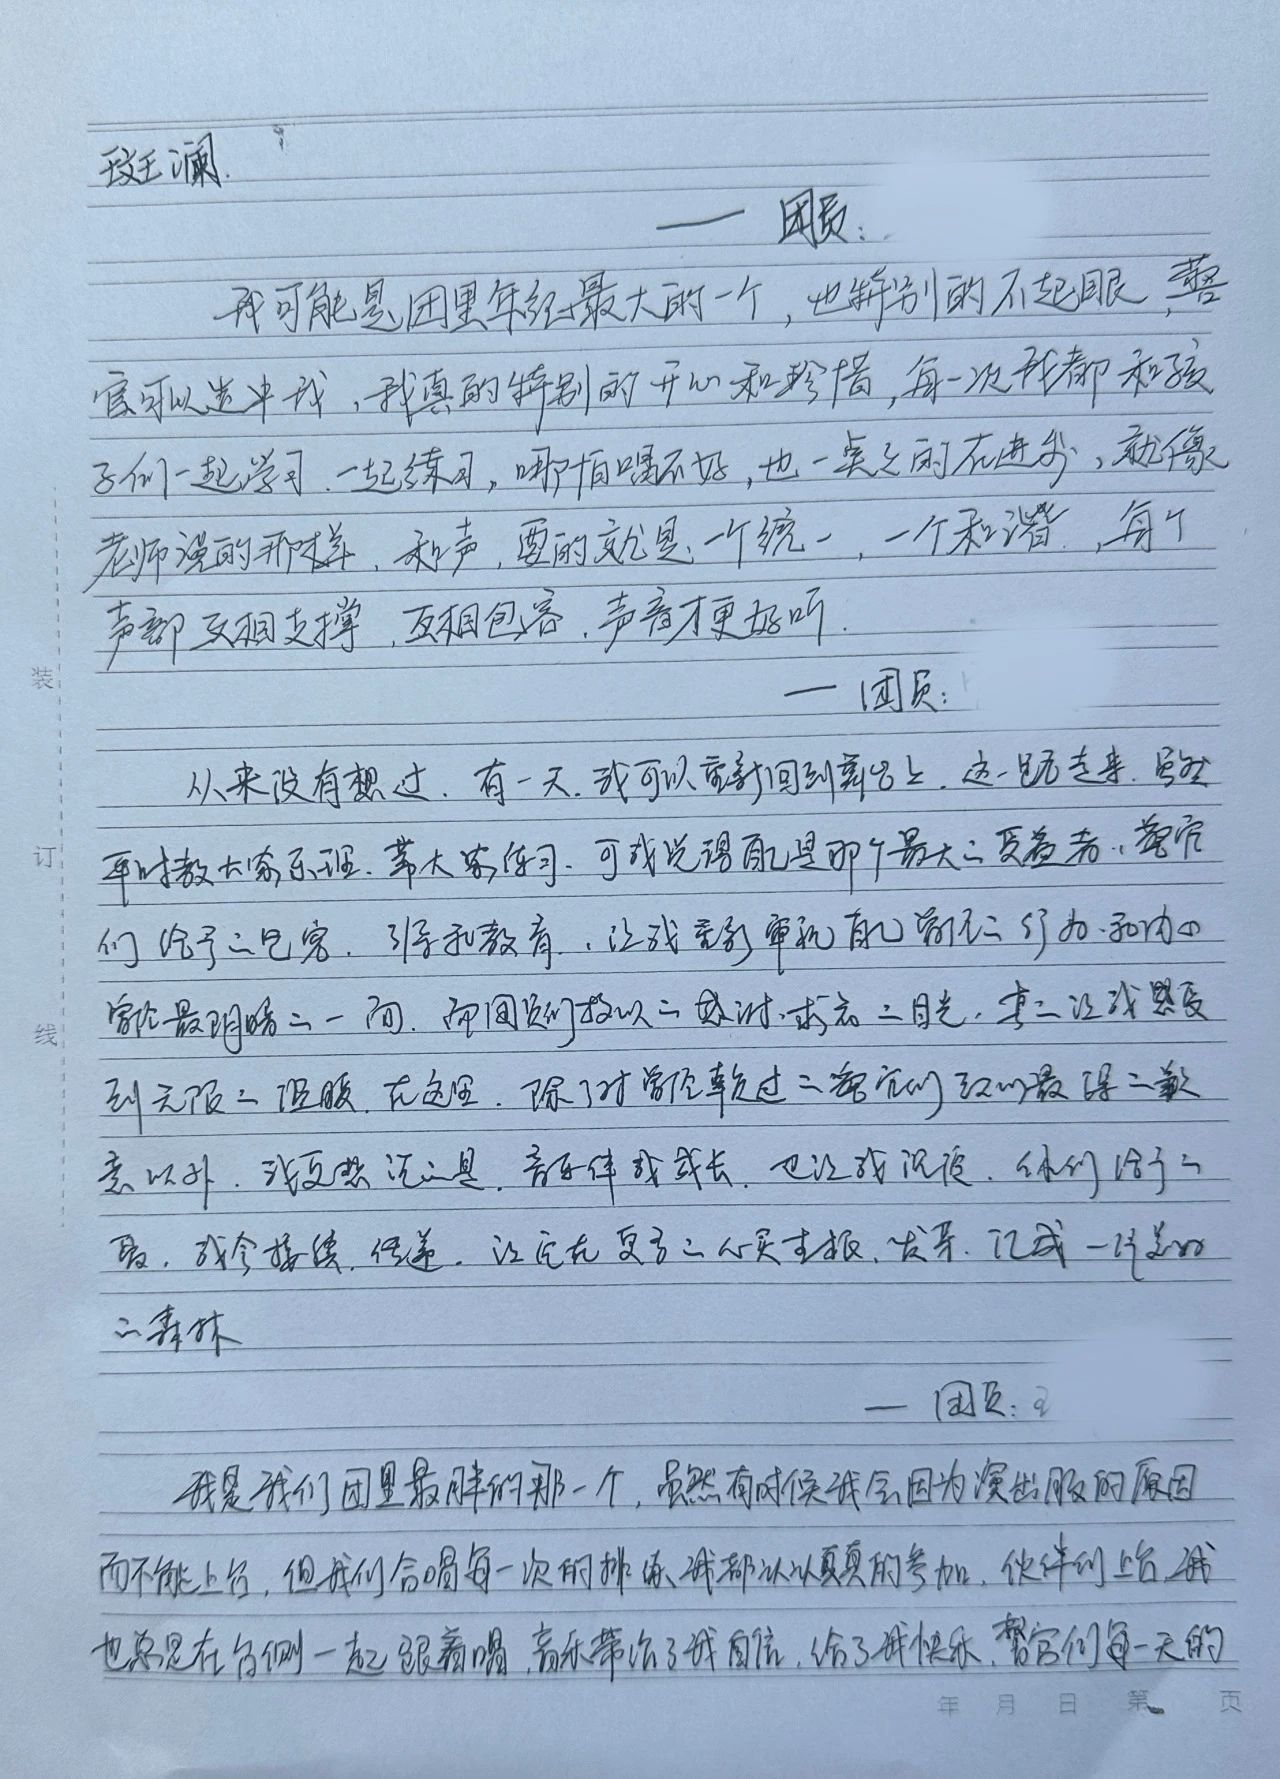 斑斓.
—— 团员:
我可能是团里年纪最大的一个，也特别的不起眼，警
官可以选中我，我真的特别的开心和珍惜，每一次我都和孩
子们一起学习.一起练习，哪怕唱不好，也一点之的在进步，就像
老师说的那样，和声，要的就是一个统一，一个和谐，每个
声部互相支撑，互相包容，声音才更好听.
— 团员:
从来没有想过.有一天.我可以重新回到舞台上.这一路走来.虽然
平时教大家乐理.带大家练习.可我觉得自己是那个最大的受益者.警官
们给予的包容.引导和教育.让我重新审视自己曾经的行为.和内心
曾经最阴暗的一面.而团员们投以的感谢.求知的目光.真的让我感受
到无限的温暖.在这里.除了对曾经辜负过的警官们致以最深的歉
意以外.我更想说的是.音乐伴我成长.也让我沉淀.你们给予的
爱.我会接续.传递.让它在更多的心灵生根.发芽.汇成一片美好
的森林
— 团员:
我是我们团里最胖的那一个，虽然有时候我会因为演出服的原因
而不能上台，但我们合唱每一次的排练，我都认认真真的参加，伙伴们上台，我
也总是在台侧一起跟着唱，音乐带给了我自信，给了我快乐，警官们每一天的
装
订
线
年 月 日 第 页